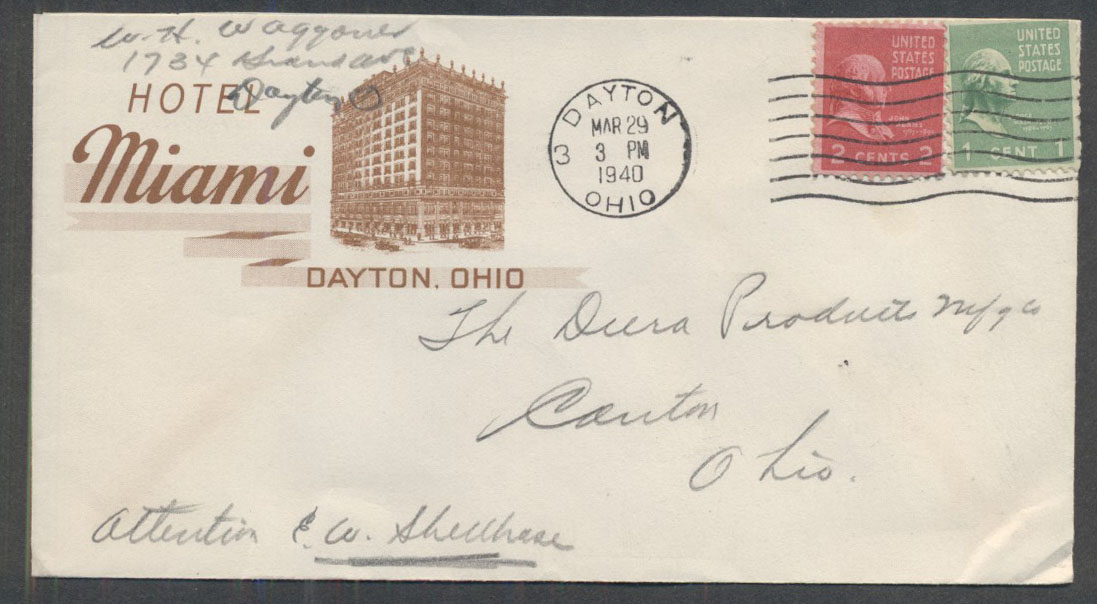 W. H. Waggoner
1734 Grand Ave
Dayton O
HOTEL
Miami
DAYTON, OHIO
DAYTON
MAR 29
3 PM
1940
3
OHIO
UNITED
STATES
POSTAGE
2 CENTS 2
UNITED
STATES
POSTAGE
1 CENT 1
The Duera Products Mfg Co
Canton
Ohio.
Attention E. W. Shellhase